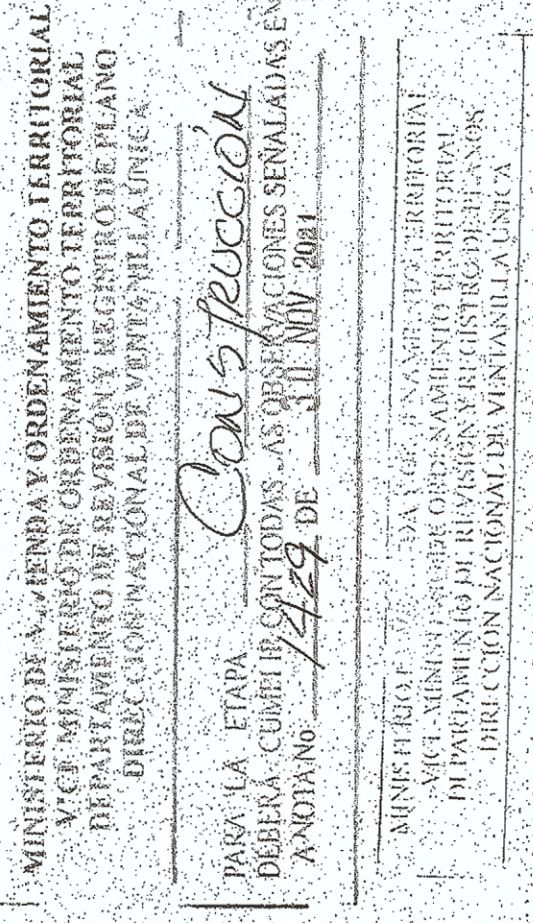 MINISTERIO DE VIVIENDA Y ORDENAMIENTO TERRITORIAL
VICE MINISTERIO DE ORDENAMIENTO TERRITORIAL
DEPARTAMENTO DE REVISIÓN Y REGISTRO DE PLANO
DIRECCIÓN NACIONAL DE VENTANILLA ÚNICA
PARA LA ETAPA Construcción
DEBERÁ CUMPLIR CON TODAS LAS OBSERVACIONES SEÑALADAS EN
ANOTA No. 1429 DE NOV 2021
MINISTERIO TERRITORIAL
VICE MINISTERIO DE ORDENAMIENTO TERRITORIAL
DEPARTAMENTO DE REVISIÓN Y REGISTRO DE PLANOS
DIRECCIÓN NACIONAL DE VENTANILLA UNICA